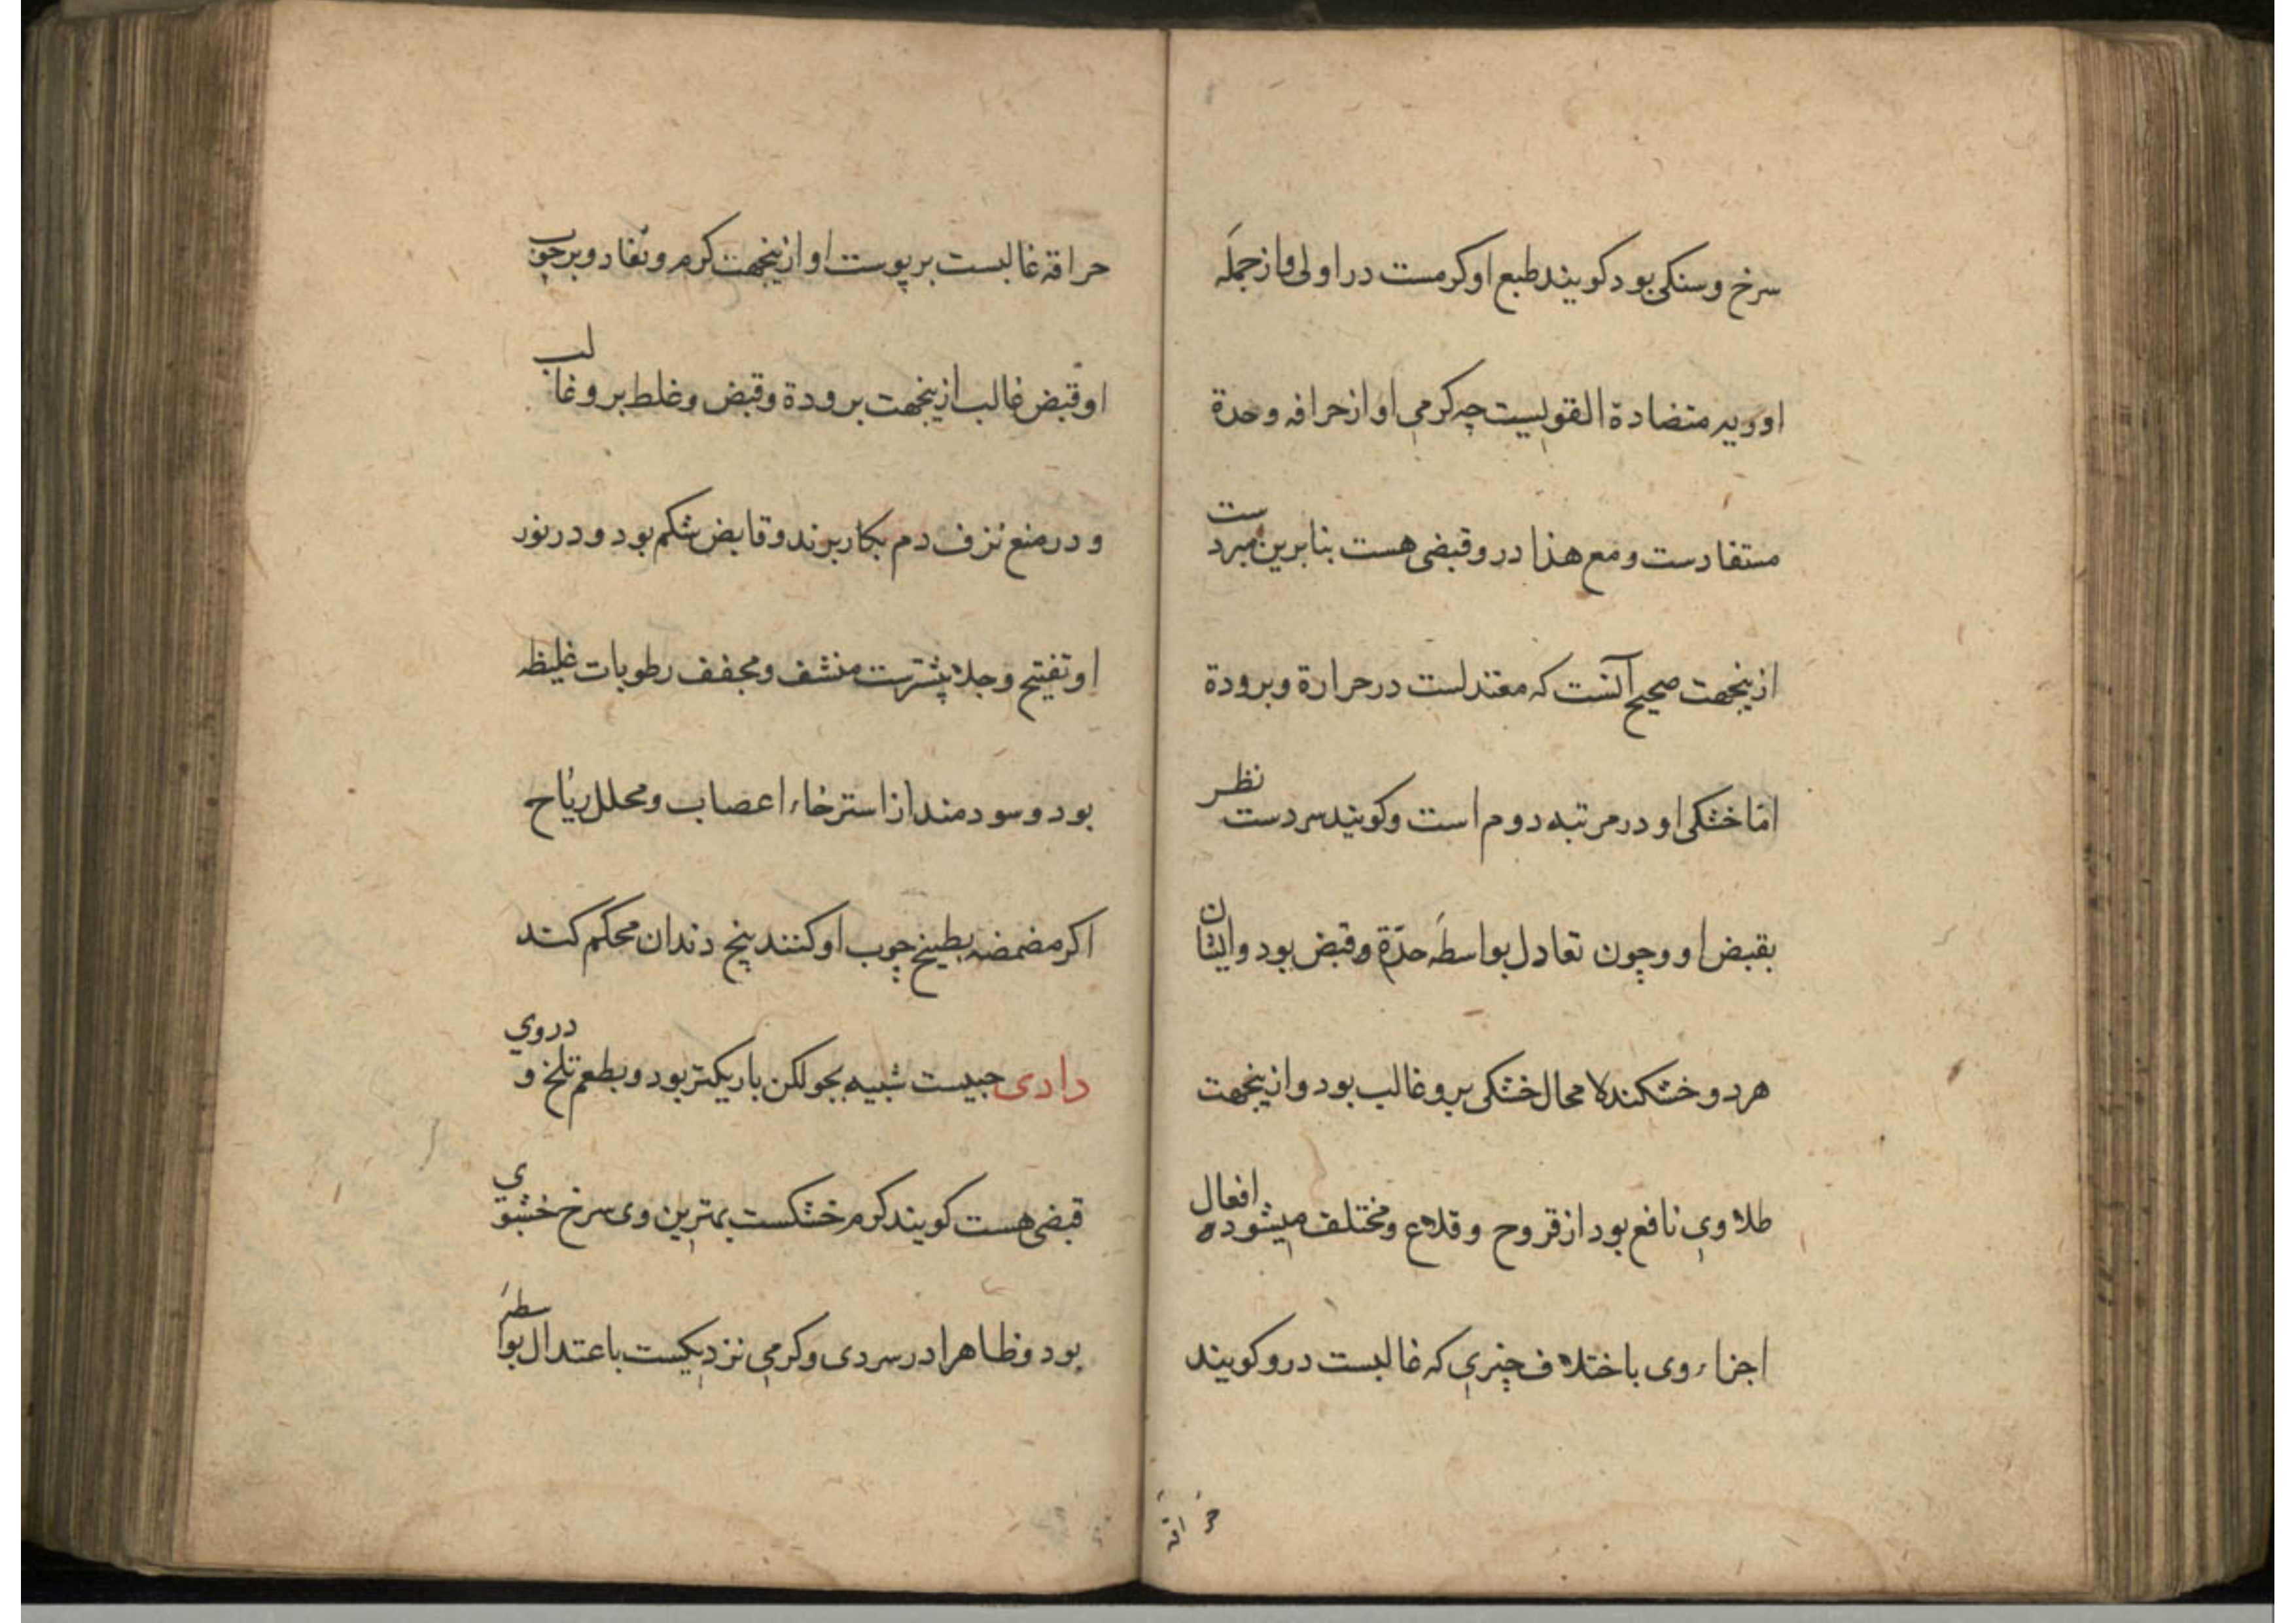 سرخ و سنکی بود کویند طبع او کرمست در اولی و از جمله
ادویه متضادة القویست چه کرمی او از حرافه و حدة
مستفادست و مع هذا درو قبضی هست بنابرین مبردست
ازینجهت صحیح آنست که معتدلست در حرارة و برودة
امّا خشکی او در مرتبه دوم است و کویند سردست نظر
بقبض او و چون تعادل بواسطه حدّة و قبض بود و ایشان
هر دو خشکند لا محال خشکی برو غالب بود و ازینجهت
طلا وی نافع بود از قروح و قلاع و مختلف میشوده افعال
اجزاء وی باختلاف چیزی که غالبست درو کویند
حراقه
حراقه غالبست بر پوست او ازینجهت کرم و نفاد و بر چوب
او قبض غالب ازینجهت برودة و قبض و غلط برو غالب
و در منع نزف دم بکار برند و قابض شکم بود و در نور
او تفتیح و جلا بیشترست منشف و مجفف رطوبات غلیظه
بود و سودمند از استرخاء اعصاب و محلل ریاح
اکر مضمضه بطبیخ چوب او کنند بیخ دندان محکم کند
دادی حبیست شبیه بجو لکن باریکتر بود و بطعم تلخ و در وی
قبضی هست کویند کرم خشکست بهترین وی سرخ خشبوی
بود و ظاهرا در سردی و کرمی نزدیکست باعتدال بواسطه